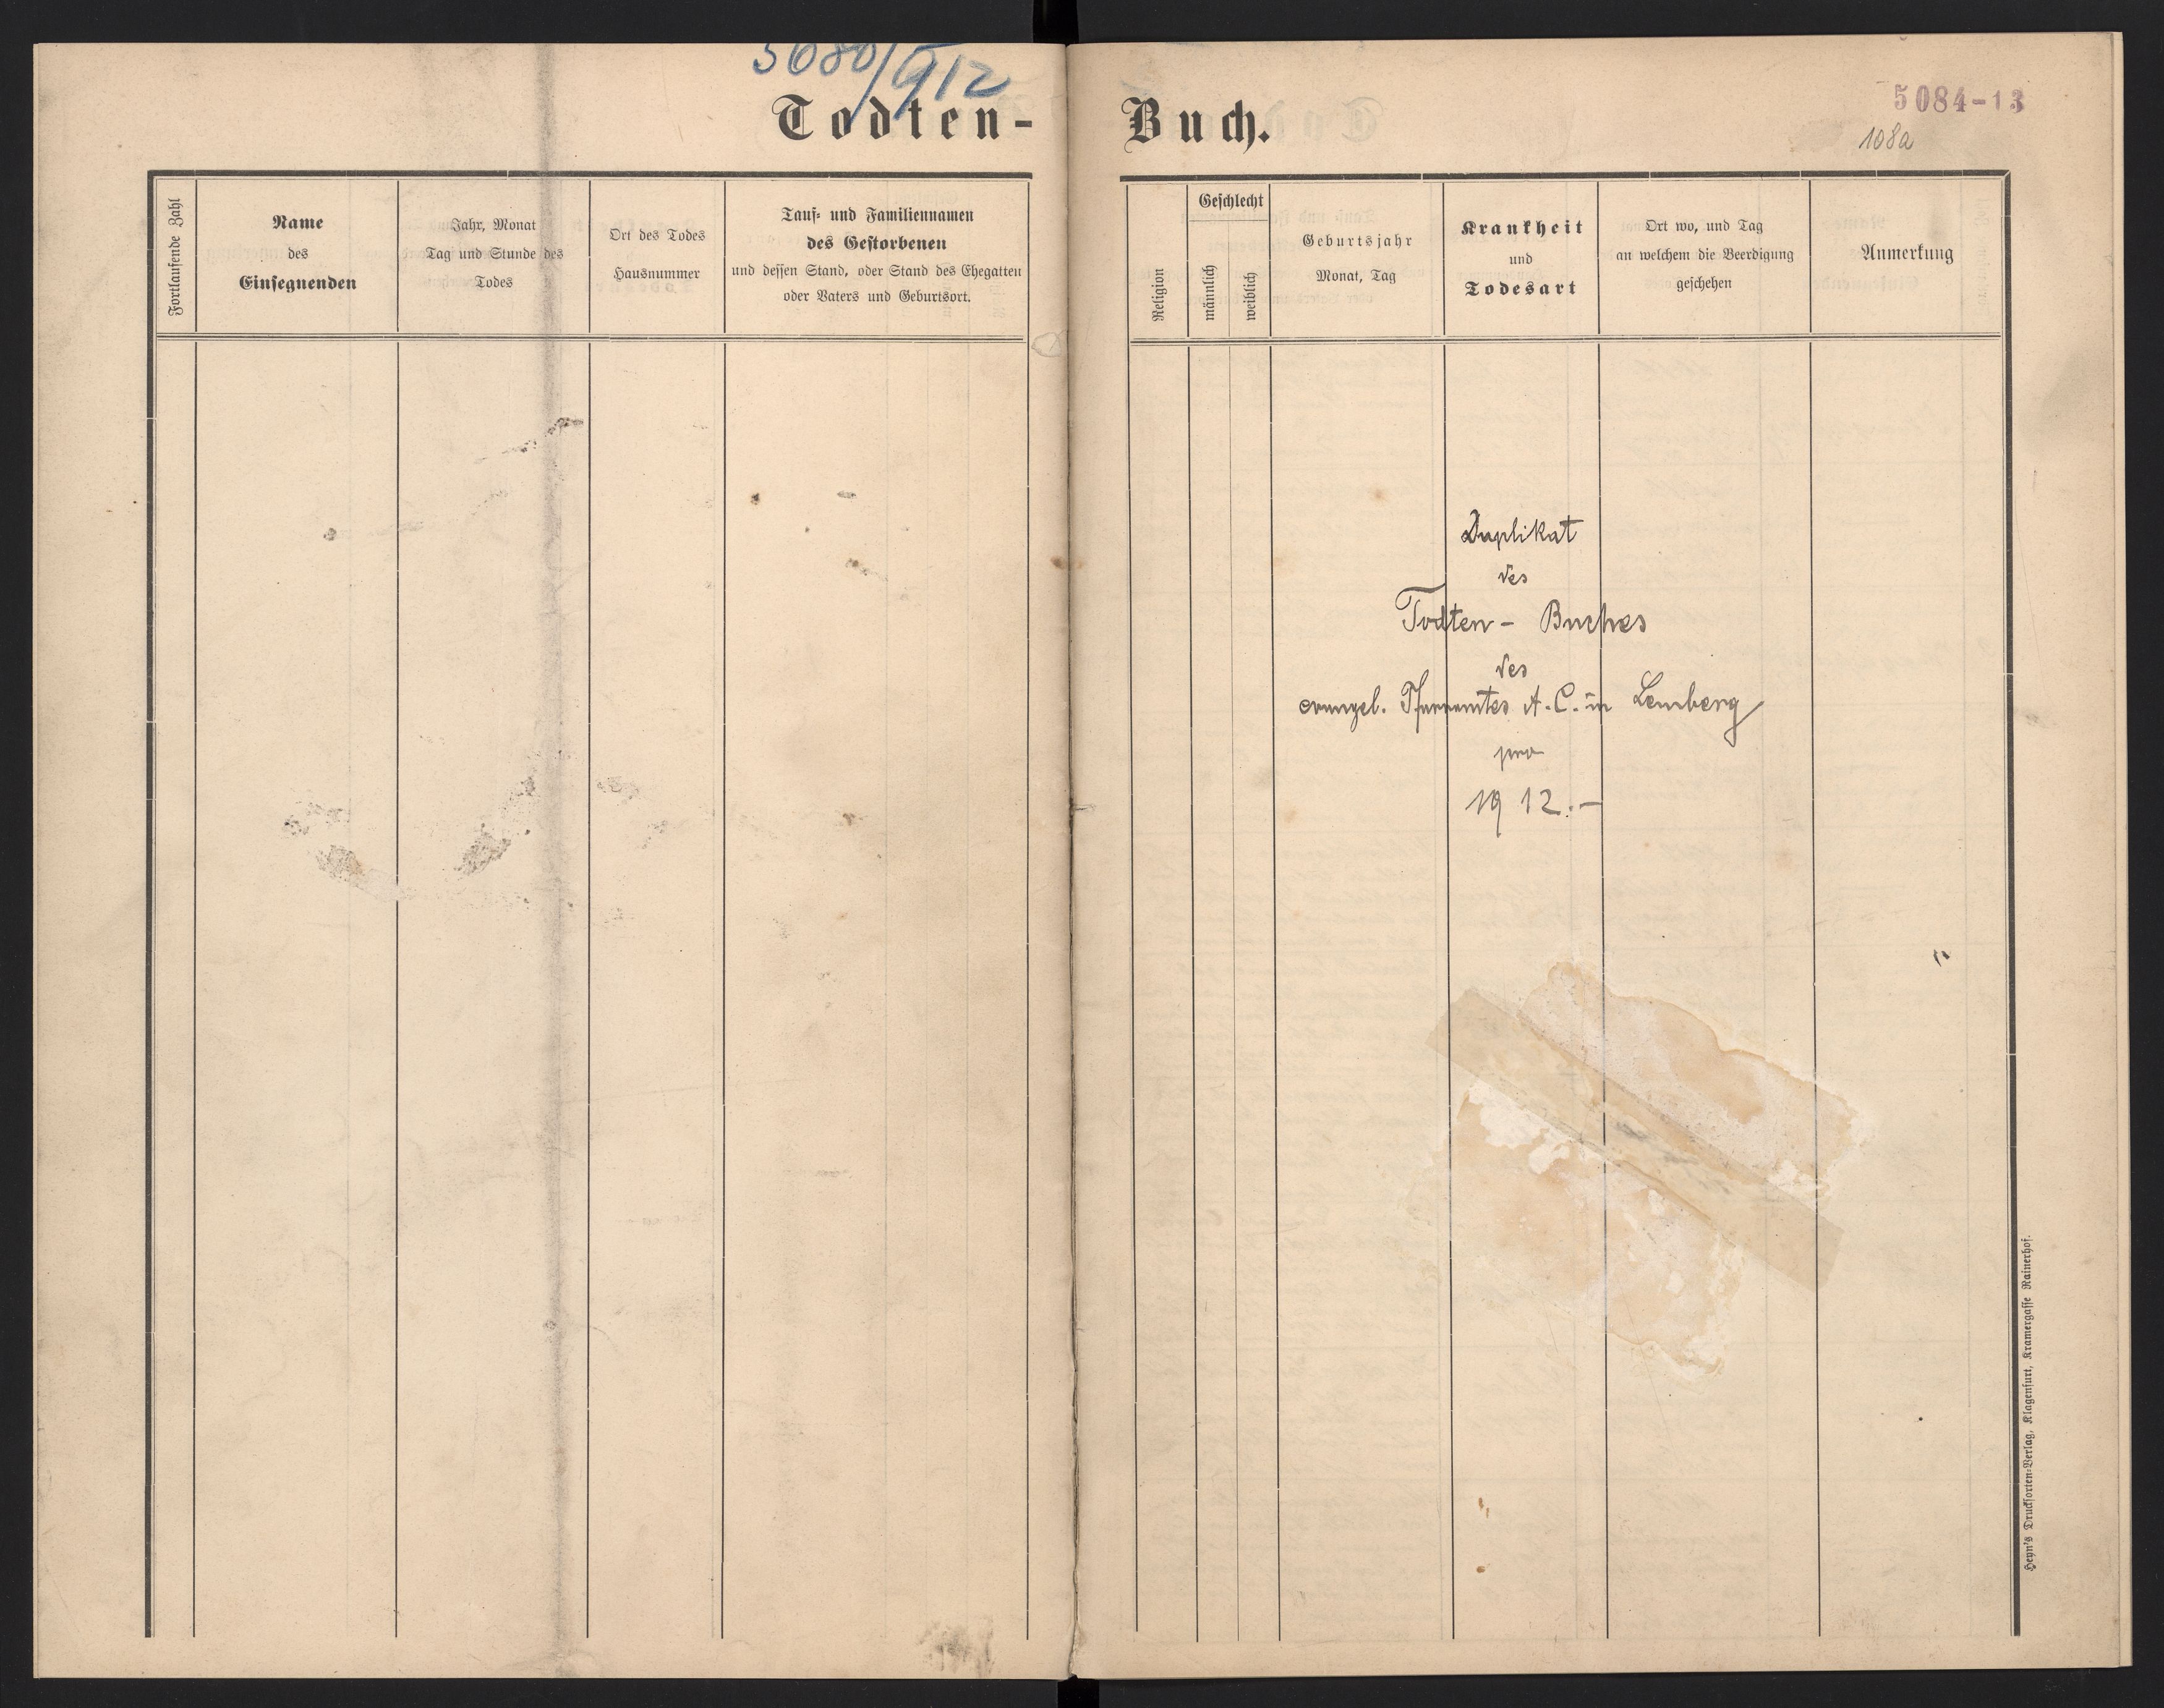 5680/912
Todten-
Fortlaufende Zahl
Name
des
Einsegnenden
Jahr, Monat
Tag und Stunde des
Todes
Ort des Todes
Hausnummer
Tauf- und Familiennamen
des Gestorbenen
und dessen Stand, oder Stand des Ehegatten
oder Vaters und Geburtsort.
Buch.
5084-13
108a
Religion
Geschlecht
männlich
weiblich
Geburtsjahr
Monat, Tag
Krankheit
und
Todesart
Ort wo, und Tag
an welchem die Beerdigung
geschehen
Anmerkung
Duplikat
des
Todten- Buches
des
evangel. Pfarramtes A. C. in Lemberg
pro
1912.-
Heyn's Drucksorten-Verlag, Klagenfurt, Kramergasse Rainerhof.